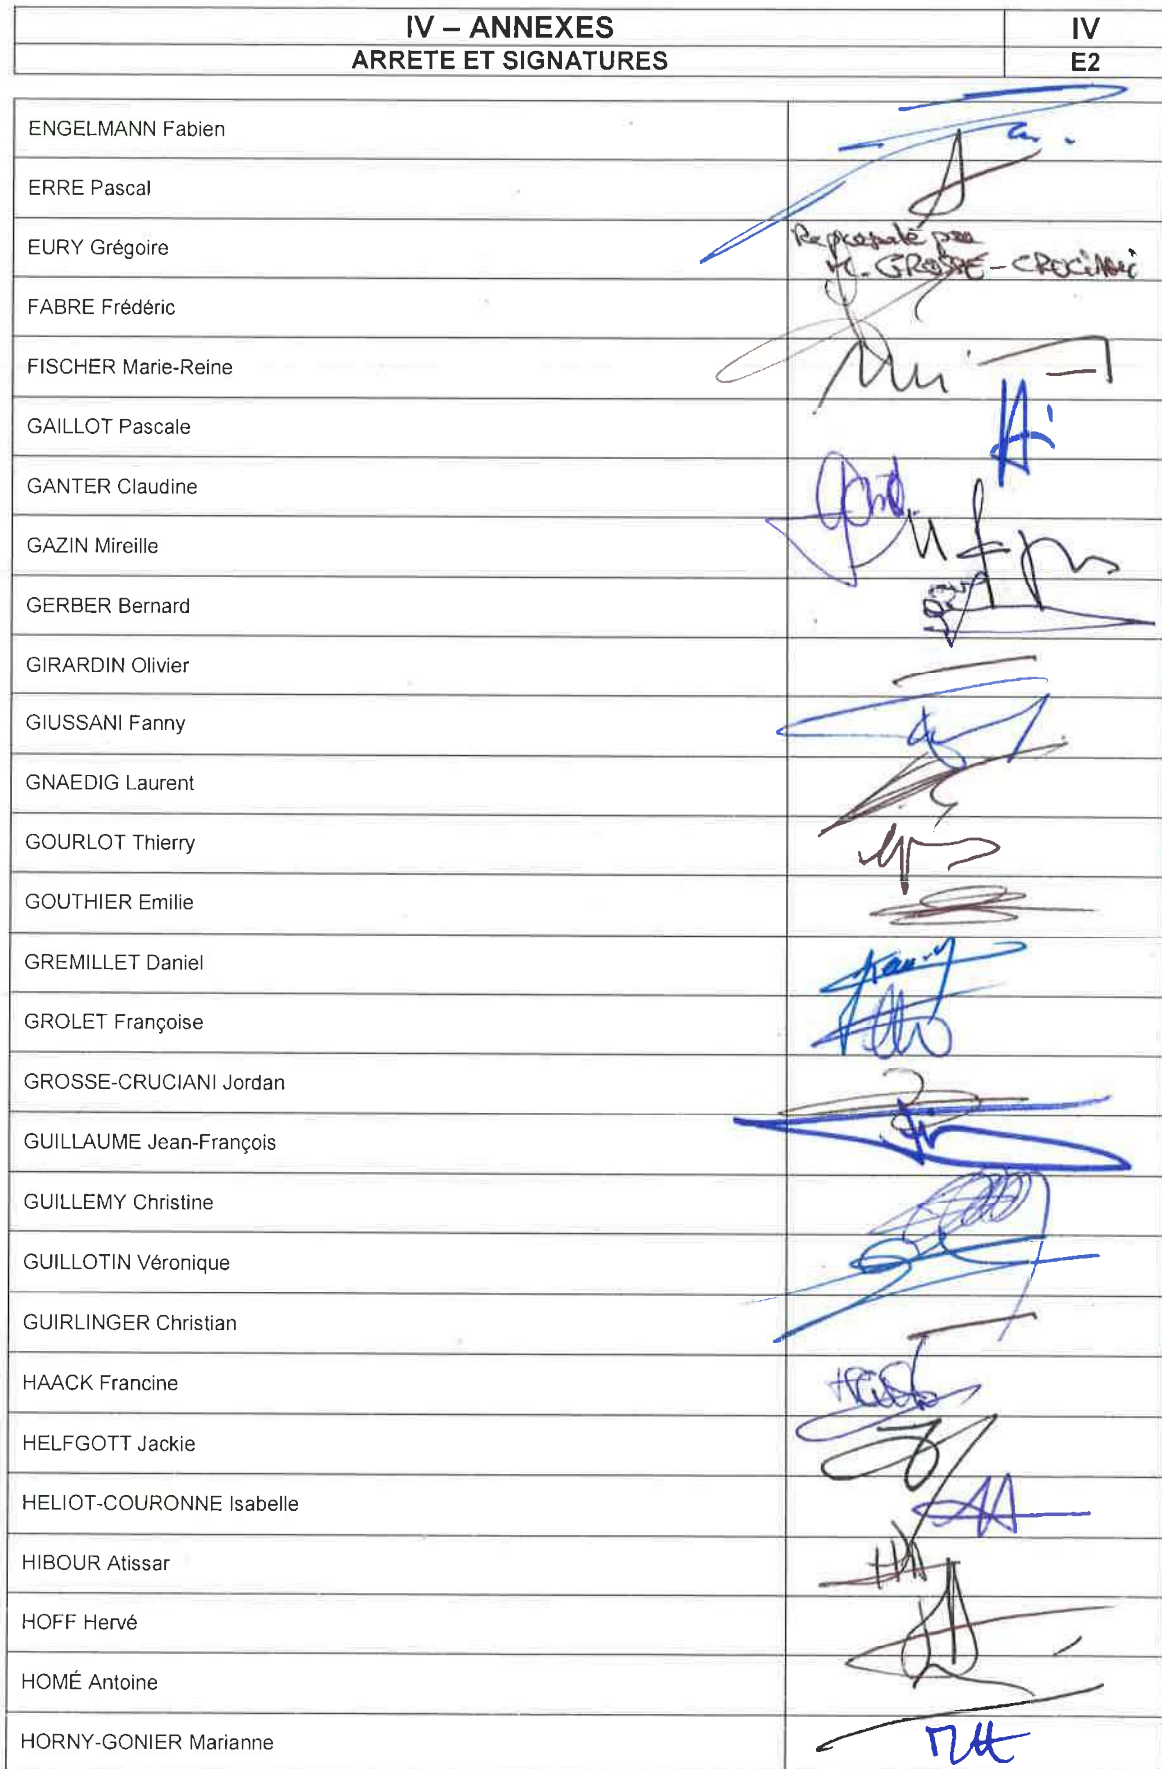 IV – ANNEXES
IV
ARRETE ET SIGNATURES
E2
ENGELMANN Fabien
ERRE Pascal
EURY Grégoire
FABRE Frédéric
FISCHER Marie-Reine
GAILLOT Pascale
GANTER Claudine
GAZIN Mireille
GERBER Bernard
GIRARDIN Olivier
GIUSSANI Fanny
GNAEDIG Laurent
GOURLOT Thierry
GOUTHIER Emilie
GREMILLET Daniel
GROLET Françoise
GROSSE-CRUCIANI Jordan
GUILLAUME Jean-François
GUILLEMY Christine
GUILLOTIN Véronique
GUIRLINGER Christian
HAACK Francine
HELFGOTT Jackie
HELIOT-COURONNE Isabelle
HIBOUR Atissar
HOFF Hervé
HOMÉ Antoine
HORNY-GONIER Marianne